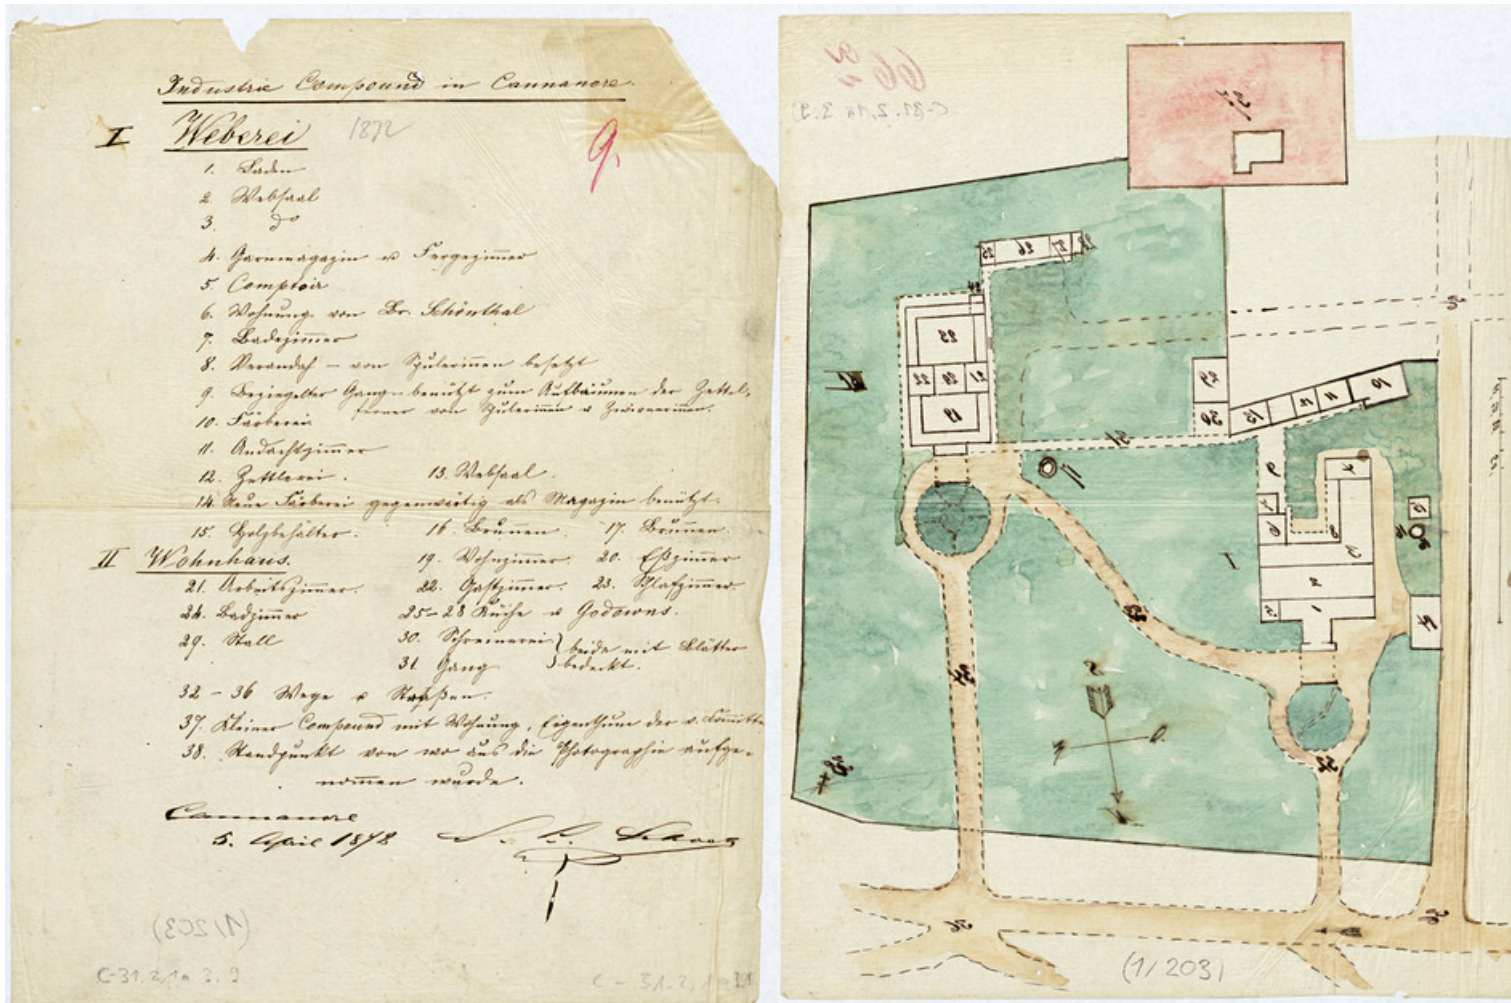 Industrie Compound in Cannanore.
I Weberei 1872
9.
1. Laden
2. Websaal
3. do
4. Garnmagazin u Fergezimmer
5. Comptoir
6. Wohnung von Br. Schönthal
7. Badezimmer
8. Verandah – von Spulerinnen besetzt
9. Beziegelter Gang benützt zum Aufbäumen der Zettel,
ferner von Spulerinnen u Zwirnerinnen.
10. Färberei
11. Andachtzimmer
12. Zettlerei. 13. Websaal.
14. Neue Färberei gegenwärtig als Magazin benützt.
15. Holzbehälter. 16. Brunnen. 17. Brunnen.
II Wohnhaus. 19. Wohnzimmer. 20. Eßzimmer
21. Arbeitszimmer. 22. Gastzimmer. 23. Schlafzimmer.
24. Badzimmer 25–28 Küche u Godowns.
29. Stall 30. Schreinerei } beide mit Blätter
31. Gang } bedeckt.
32–36 Wege u Straßen.
37. Kleiner Compound mit Wohnung, Eigenthum der v. Committee
38. Standpunkt von wo aus die Photographie aufge-
nommen wurde.
Cannanore
5. April 1872
(1/203)
C-31.2,1a 3.9
66
C-31.2,1a 3.9
37
28
27
26
25
24
23
22
20
21
19
29
30
31
13
12
11
10
II
17
9
4
7
6
8
3
15
16
I
2
1
14
33
34
S
O.
N
38
32
36
35
36
(1/203)